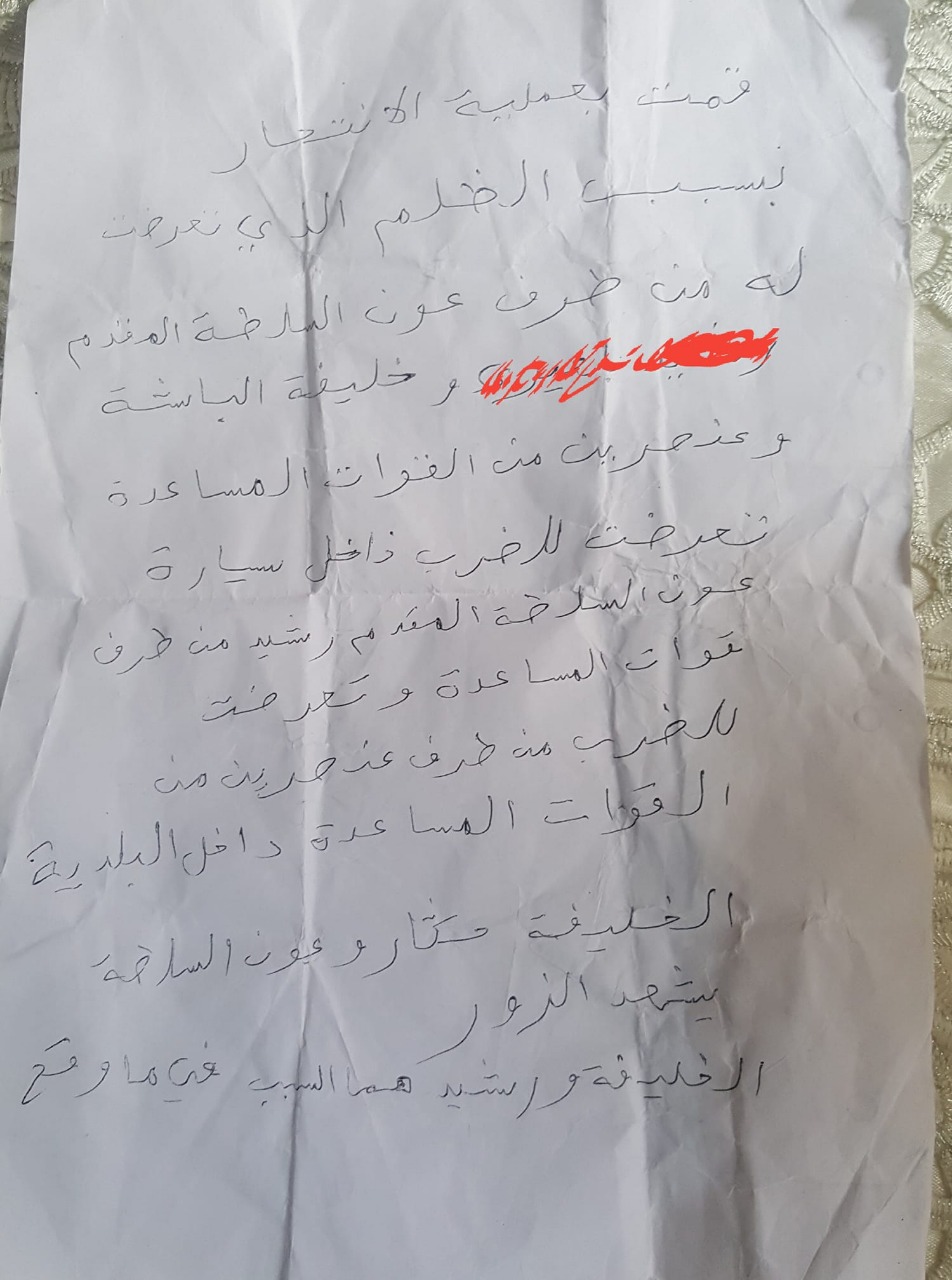 قمت بعملية الانتحار
بسبب الظلم الذي تعرضت
له من طرف عون السلطة المقدم
و خليفة الباشة
وعنصرين من القوات المساعدة
تعرضت للضرب داخل سيارة
عون السلطة المقدم رشيد من طرف
قوات المساعدة و تعرضت
للضرب من طرف عنصرين من
القوات المساعدة داخل البلدية
الخليفة و عون السلطة
يشهد الزور
الخليفة و رشيد هما السبب في ما وقع